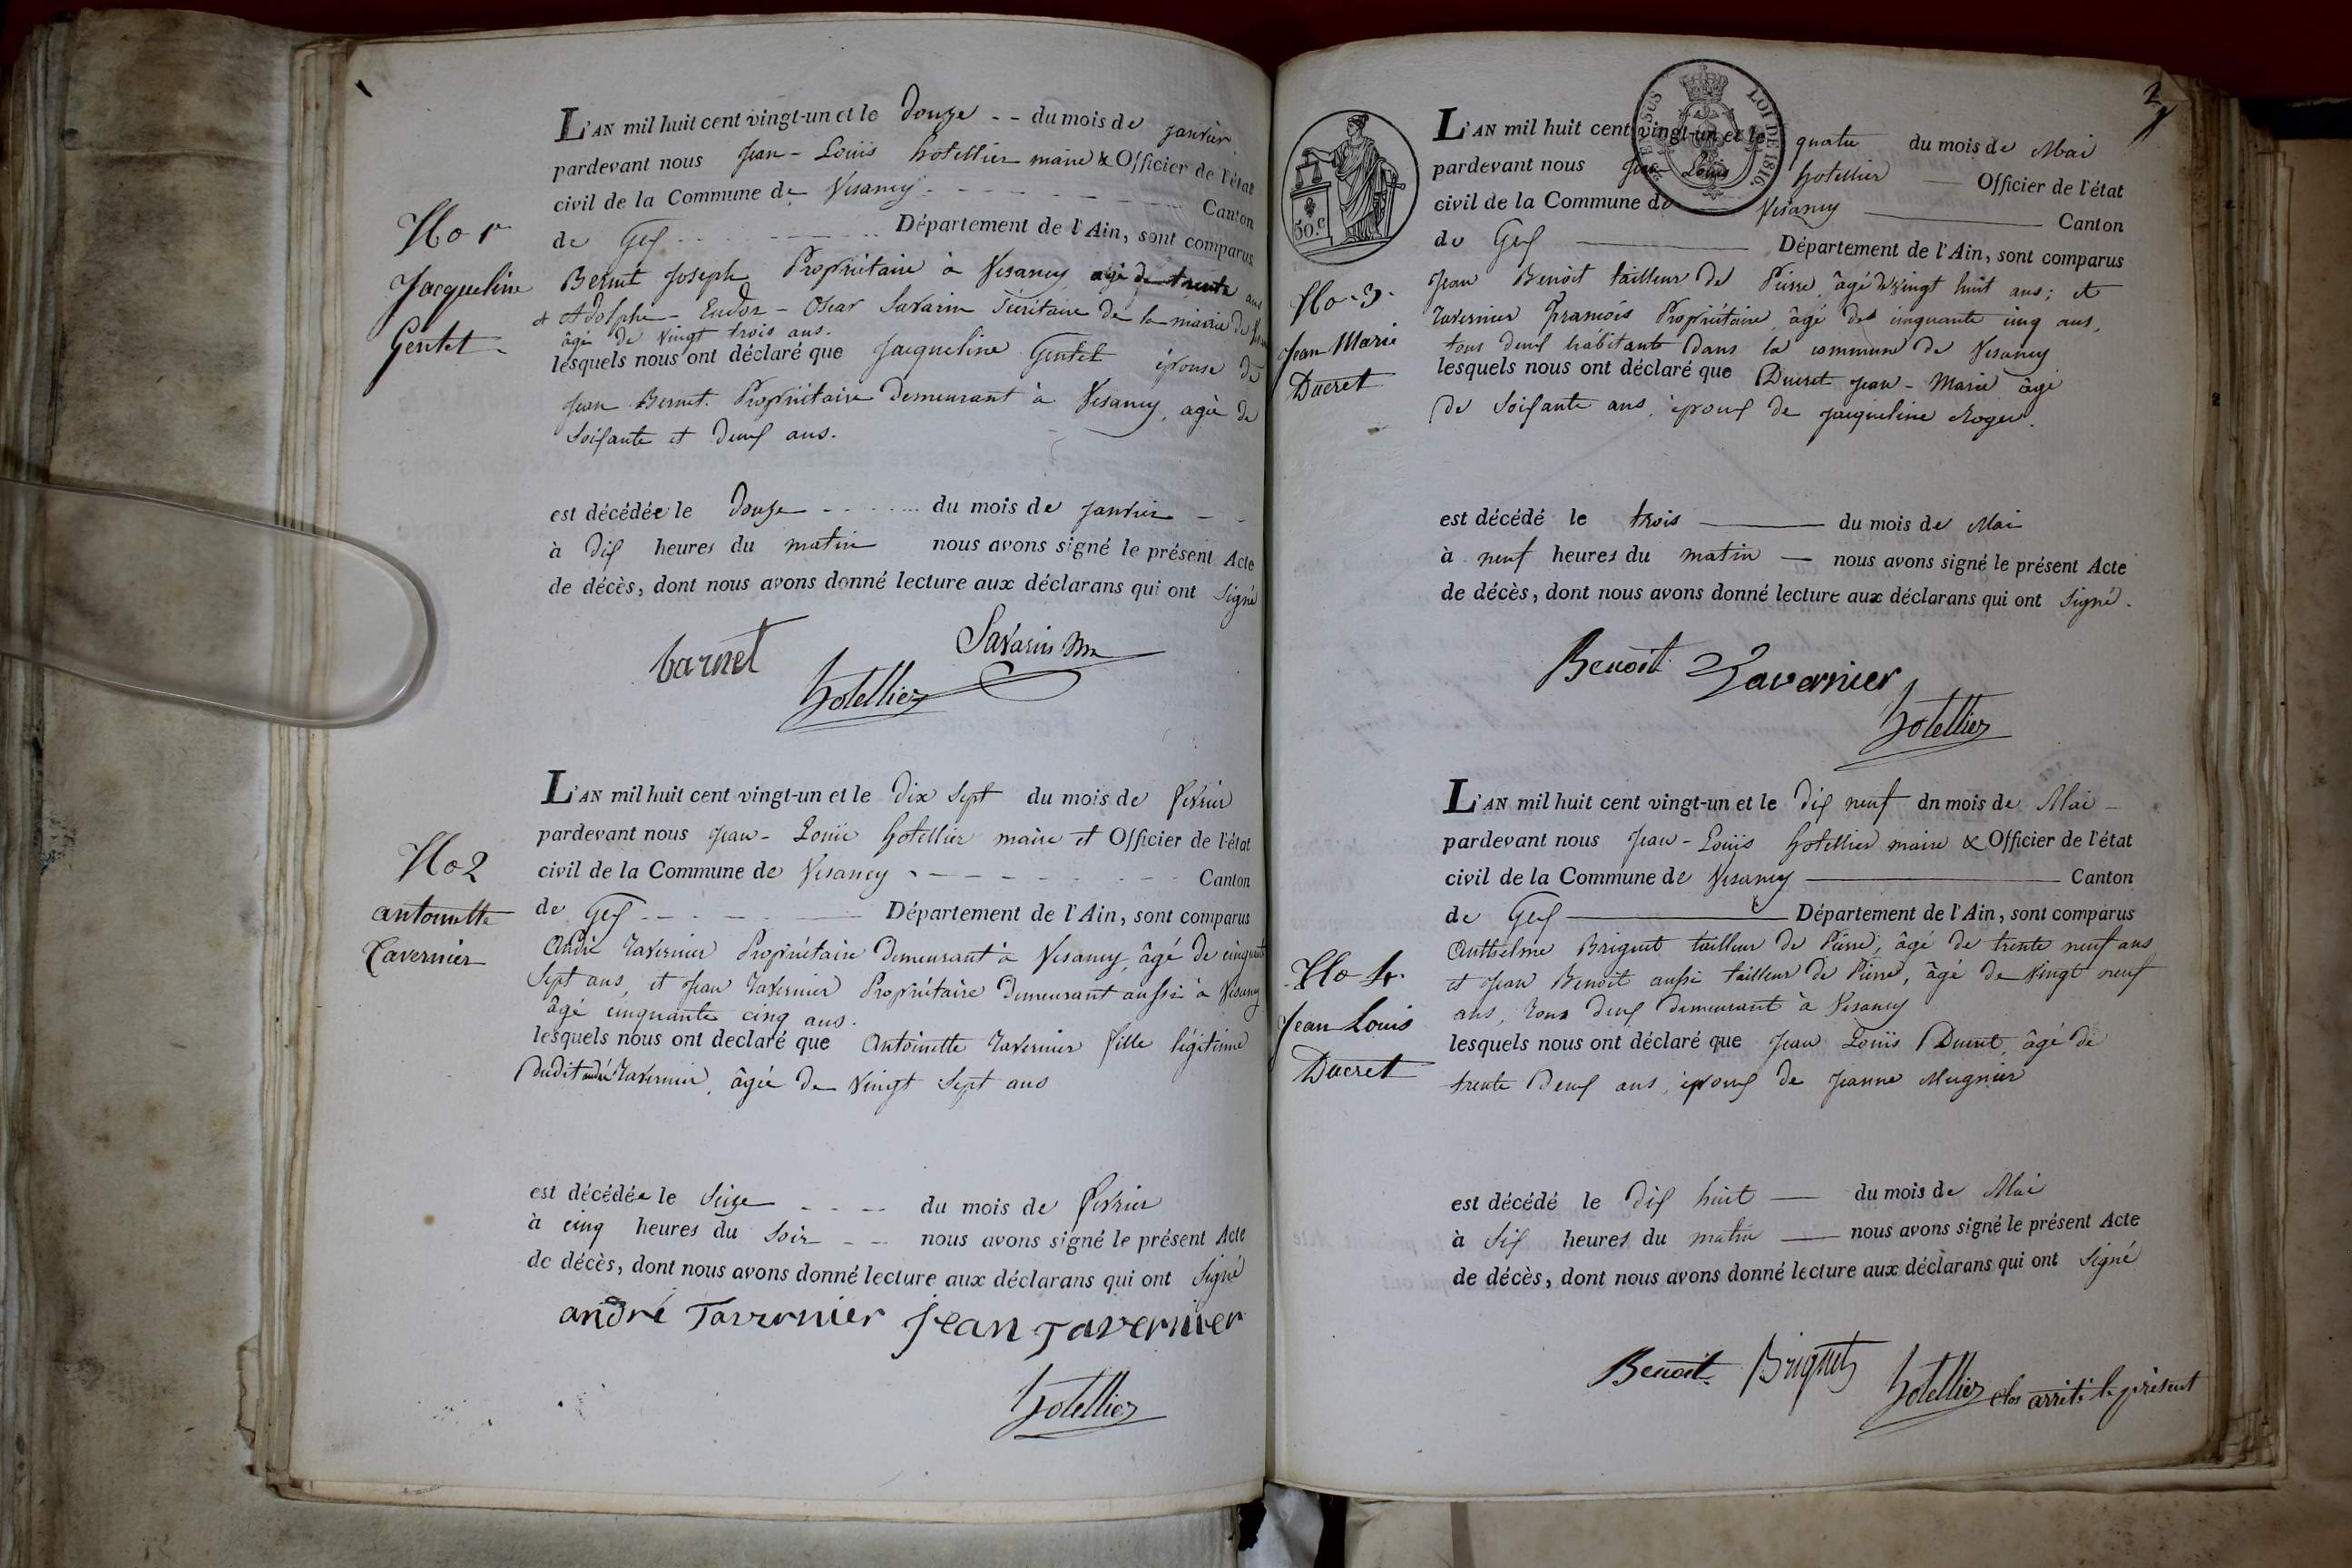 L'AN mil huit cent vingt-un et le Douze -- du mois de janvier
pardevant nous Jean-Louis hotellier maire & Officier de l'état
civil de la Commune de Vesancy Canton
de Gex Département de l'Ain, sont comparus
No 1
Jacqueline
Gentet
Bernet Joseph Propriétaire à Vesancy agé de trente ans
et Adolphe-Eudor-Oscar Savarin Sécrétaire de la mairie de
âgé de vingt trois ans.
lesquels nous ont déclaré que Jacqueline Gentet épouse de
Jean Bernet Propriétaire Demeurant à Vesancy, agée de
Soixante et Deux ans.
est décédée le Douze du mois de janvier
à Dix heures du matin nous avons signé le présent Acte
de décès, dont nous avons donné lecture aux déclarans qui ont Signé
barnet
Savarin
hotellier
L'AN mil huit cent vingt-un et le Dix Sept du mois de fevrier
pardevant nous Jean-Louis hotellier maire et Officier de l'état
civil de la Commune de Vesancy Canton
de Gex Département de l'Ain, sont comparus
No 2
antoinette
Tavernier
André Tavernier Propriétaire Demeurant à Vesancy, âgé de cinquante
Sept ans, et Jean Tavernier Propriétaire Demeurant aussi à Vesancy
âgé cinquante cinq ans.
lesquels nous ont declaré que Antoinette Tavernier fille légitime
Dudit andré Tavernier, âgée de vingt Sept ans
est décédée le Seize du mois de fevrier
à cinq heures du Soir nous avons signé le présent Acte
de décès, dont nous avons donné lecture aux déclarans qui ont Signé
andré Tavernier jean Tavernier
hotellier
2
LOI DE 1816.
50.c
L'AN mil huit cent vingt-un et le quatre du mois de Mai
pardevant nous Jean Louis hotellier Officier de l'état
civil de la Commune de Vesancy Canton
de Gex Département de l'Ain, sont comparus
No 3
Jean Marie
Ducret
Jean Benoit tailleur de Pierre, âgé de vingt huit ans; et
Tavernier François Propriétaire âgé de cinquante cinq ans,
tous deux habitants Dans la commune de Vesancy
lesquels nous ont déclaré que Ducret Jean-Marie âgé
de Soixante ans, époux de Jacqueline Roger.
est décédé le trois du mois de Mai
à neuf heures du matin nous avons signé le présent Acte
de décès, dont nous avons donné lecture aux déclarans qui ont Signé.
Benoit Tavernier
hotellier
L'AN mil huit cent vingt-un et le Dix neuf dn mois de Mai
pardevant nous Jean-Louis hotellier maire & Officier de l'état
civil de la Commune de Vesancy Canton
de Gex Département de l'Ain, sont comparus
No 4
Jean Louis
Ducret
Anthelme Briguet tailleur de Pierre, âgé de trente neuf ans
et Jean Benoit aussi tailleur de Pierre, âgé de vingt neuf
ans, tous deux Demeurant à Vesancy
lesquels nous ont déclaré que Jean Louis Ducret, âgé de
trente Deux ans, époux de Jeanne Mugnier
est décédé le Dix huit du mois de Mai
à Six heures du matin nous avons signé le présent Acte
de décès, dont nous avons donné lecture aux déclarans qui ont Signé
Benoit Briguet hotellier clos arrêté le présent